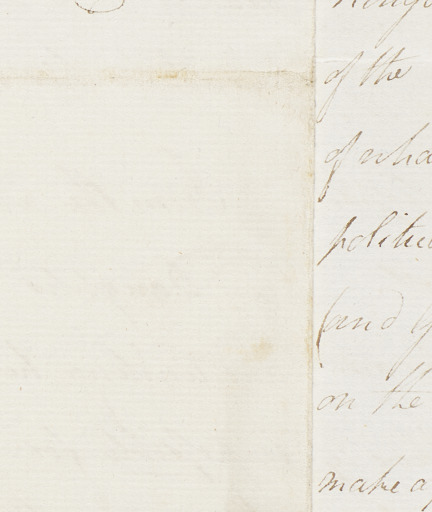 of the
of wha
politic
(and y
on the
make a